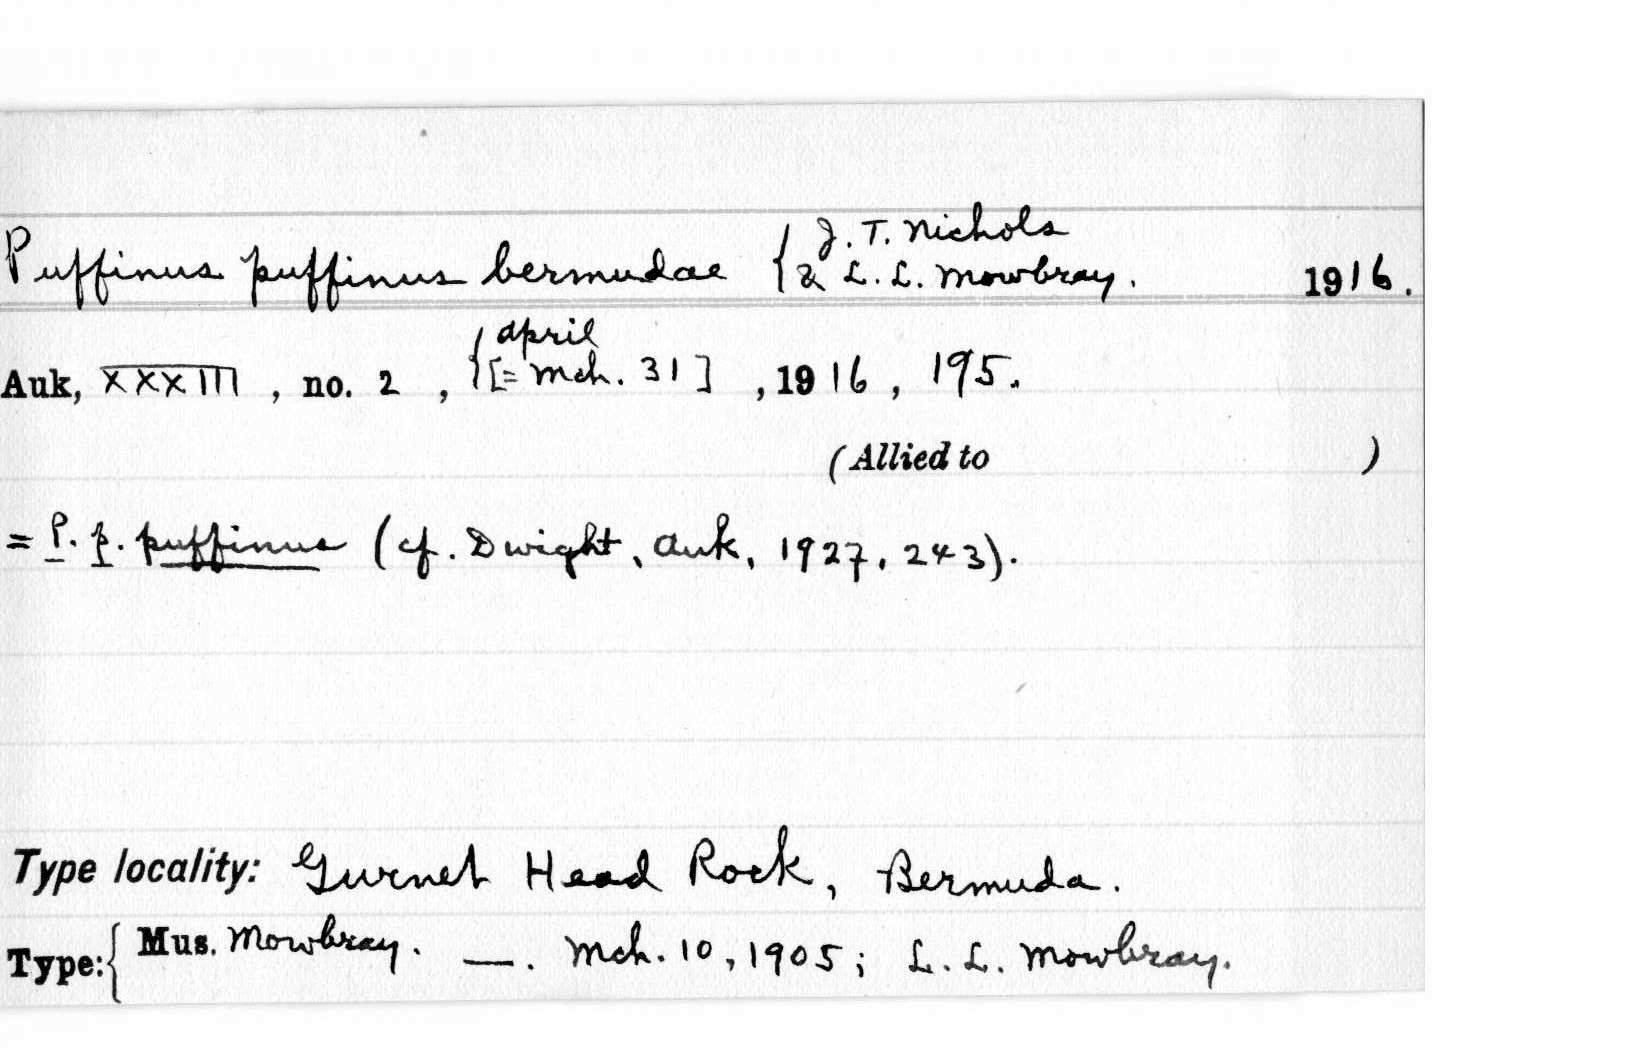 Puffinus puffinus bermudae { J. T. Nichols
& L. L. Mowbray. 1916.
Auk, XXXIII, no. 2, { April
[= Mch. 31] , 1916, 195.
(Allied to )
= P. p. puffinus (cf. Dwight, Auk, 1927, 243).
Type locality: Gurnet Head Rock, Bermuda.
Type: { Mus. Mowbray. —. Mch. 10, 1905; L. L. Mowbray.